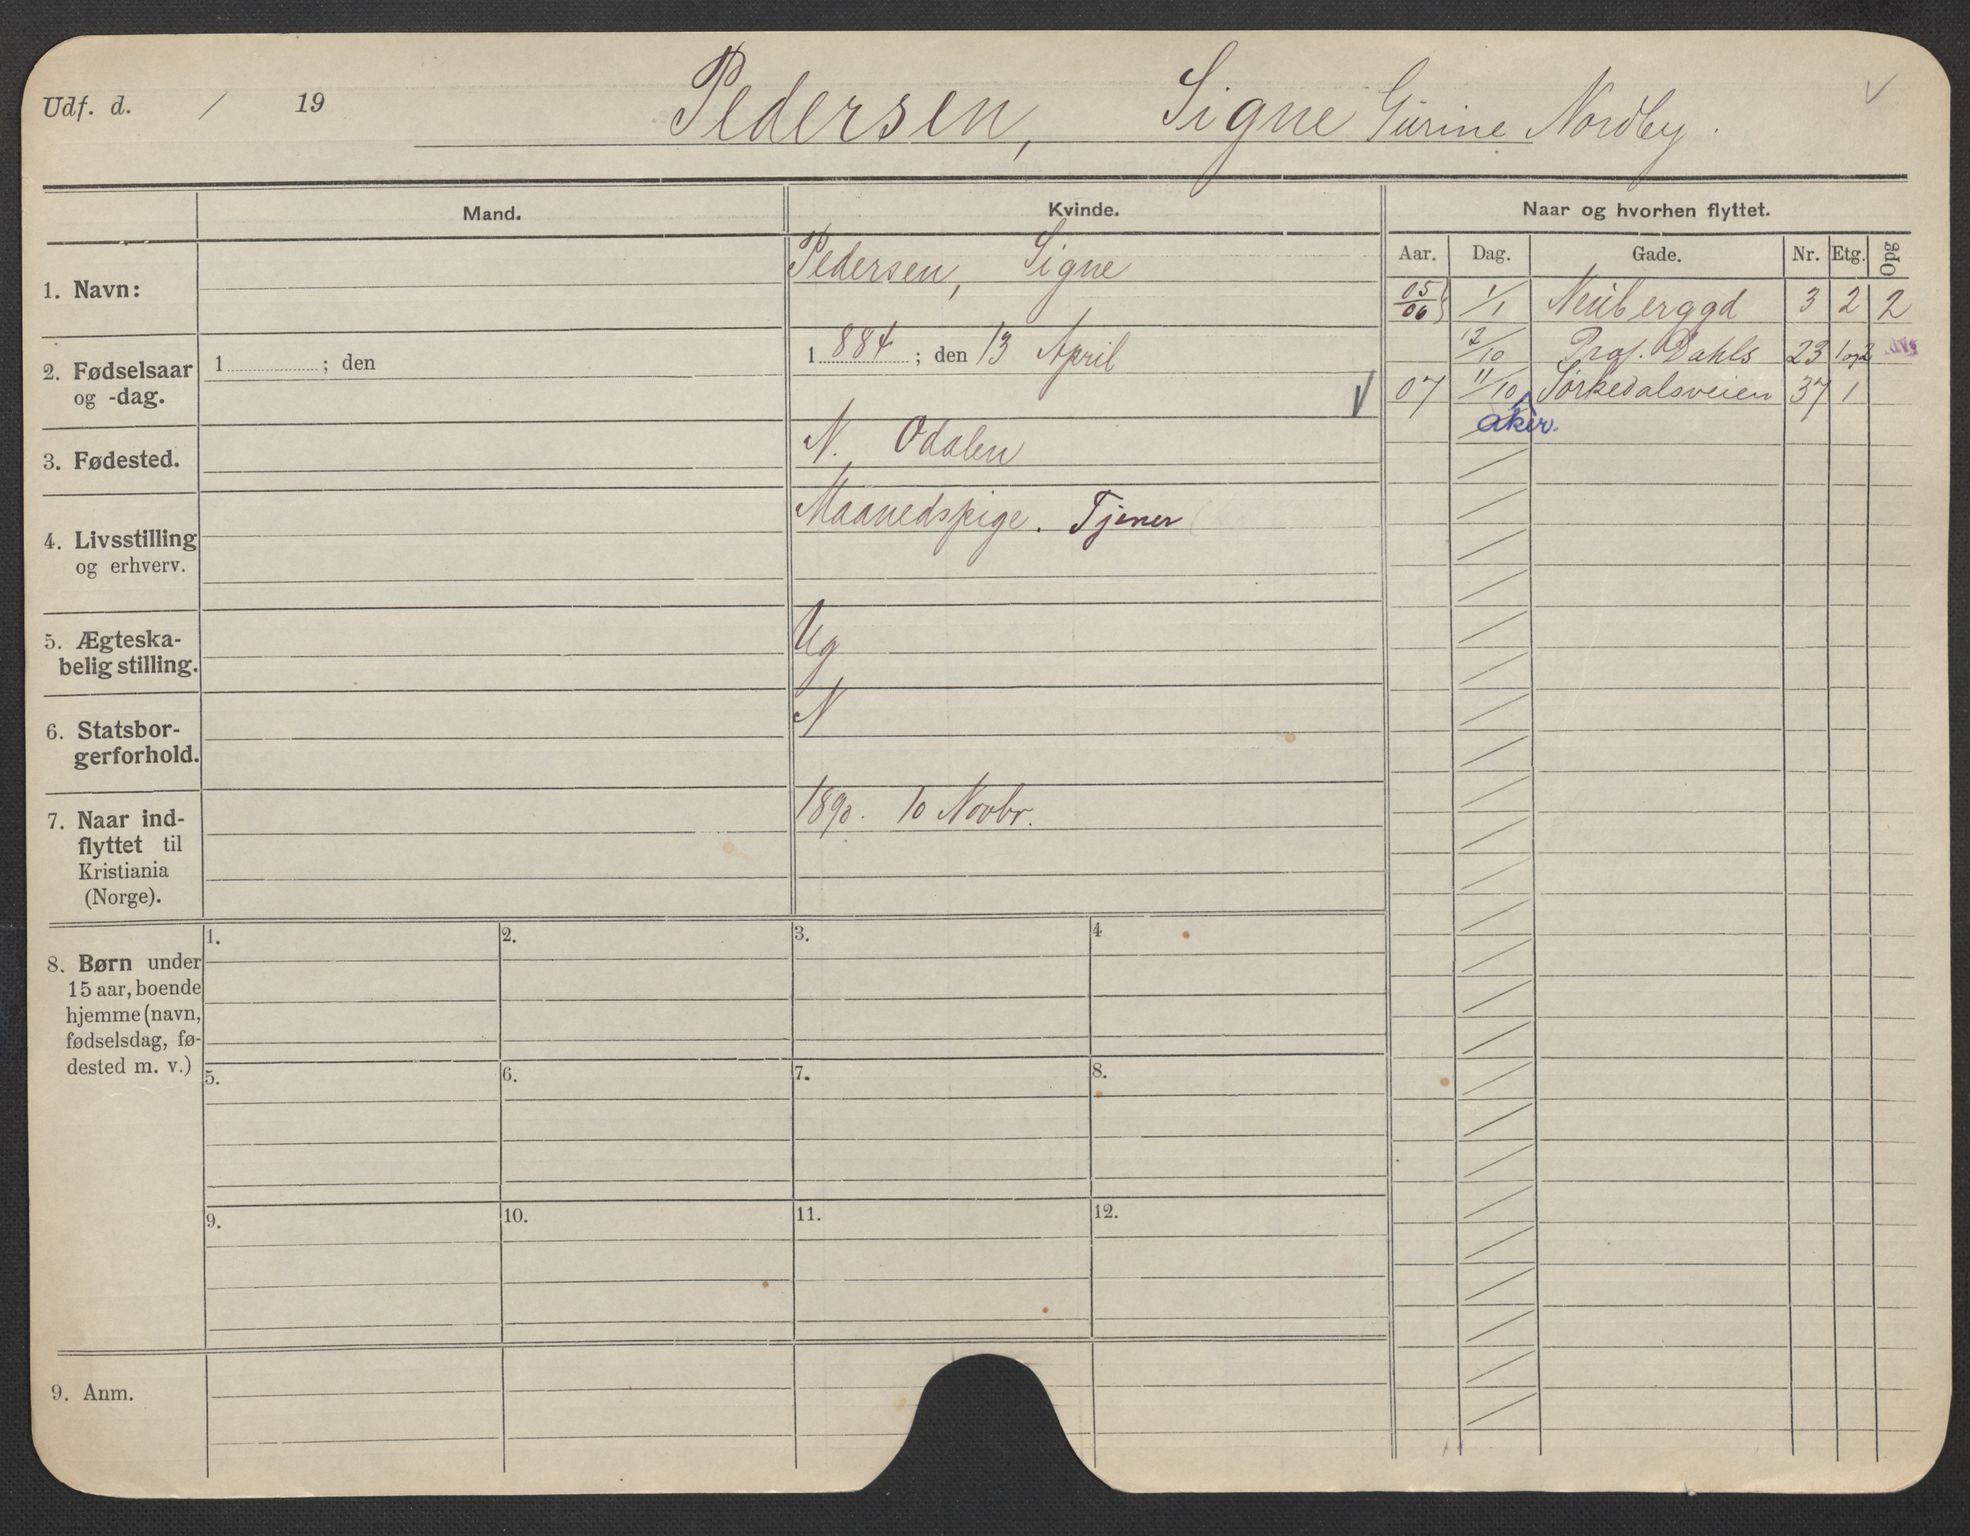 Udf. d. / 19 Pedersen, Signe Gurine Nordby.
Mand. Kvinde. Naar og hvorhen flyttet.
Aar. Dag. Gade. Nr. Etg. Opg
1. Navn: Pedersen, Signe
05/06 1/1 Neuberggd 3 2 2
2. Fødselsaar og -dag. 1 ; den 1 884 ; den 13 April
12/10 Prof. Dahls 23 1 og 2
07 11/10 Sørkedalsveien 37 1
aker.
3. Fødested. N. Odalen
4. Livsstilling Maanedspige. Tjener
og erhverv.
5. Ægteska- Ug
belig stilling.
6. Statsbor- N
gerforhold.
7. Naar ind- 1890. 10 Novbr.
flyttet til
Kristiania
(Norge).
8. Børn under
15 aar, boende
hjemme (navn,
fødselsdag, fø-
dested m. v.)
1. 2. 3. 4
5. 6. 7. 8.
9. 10. 11. 12.
9. Anm.